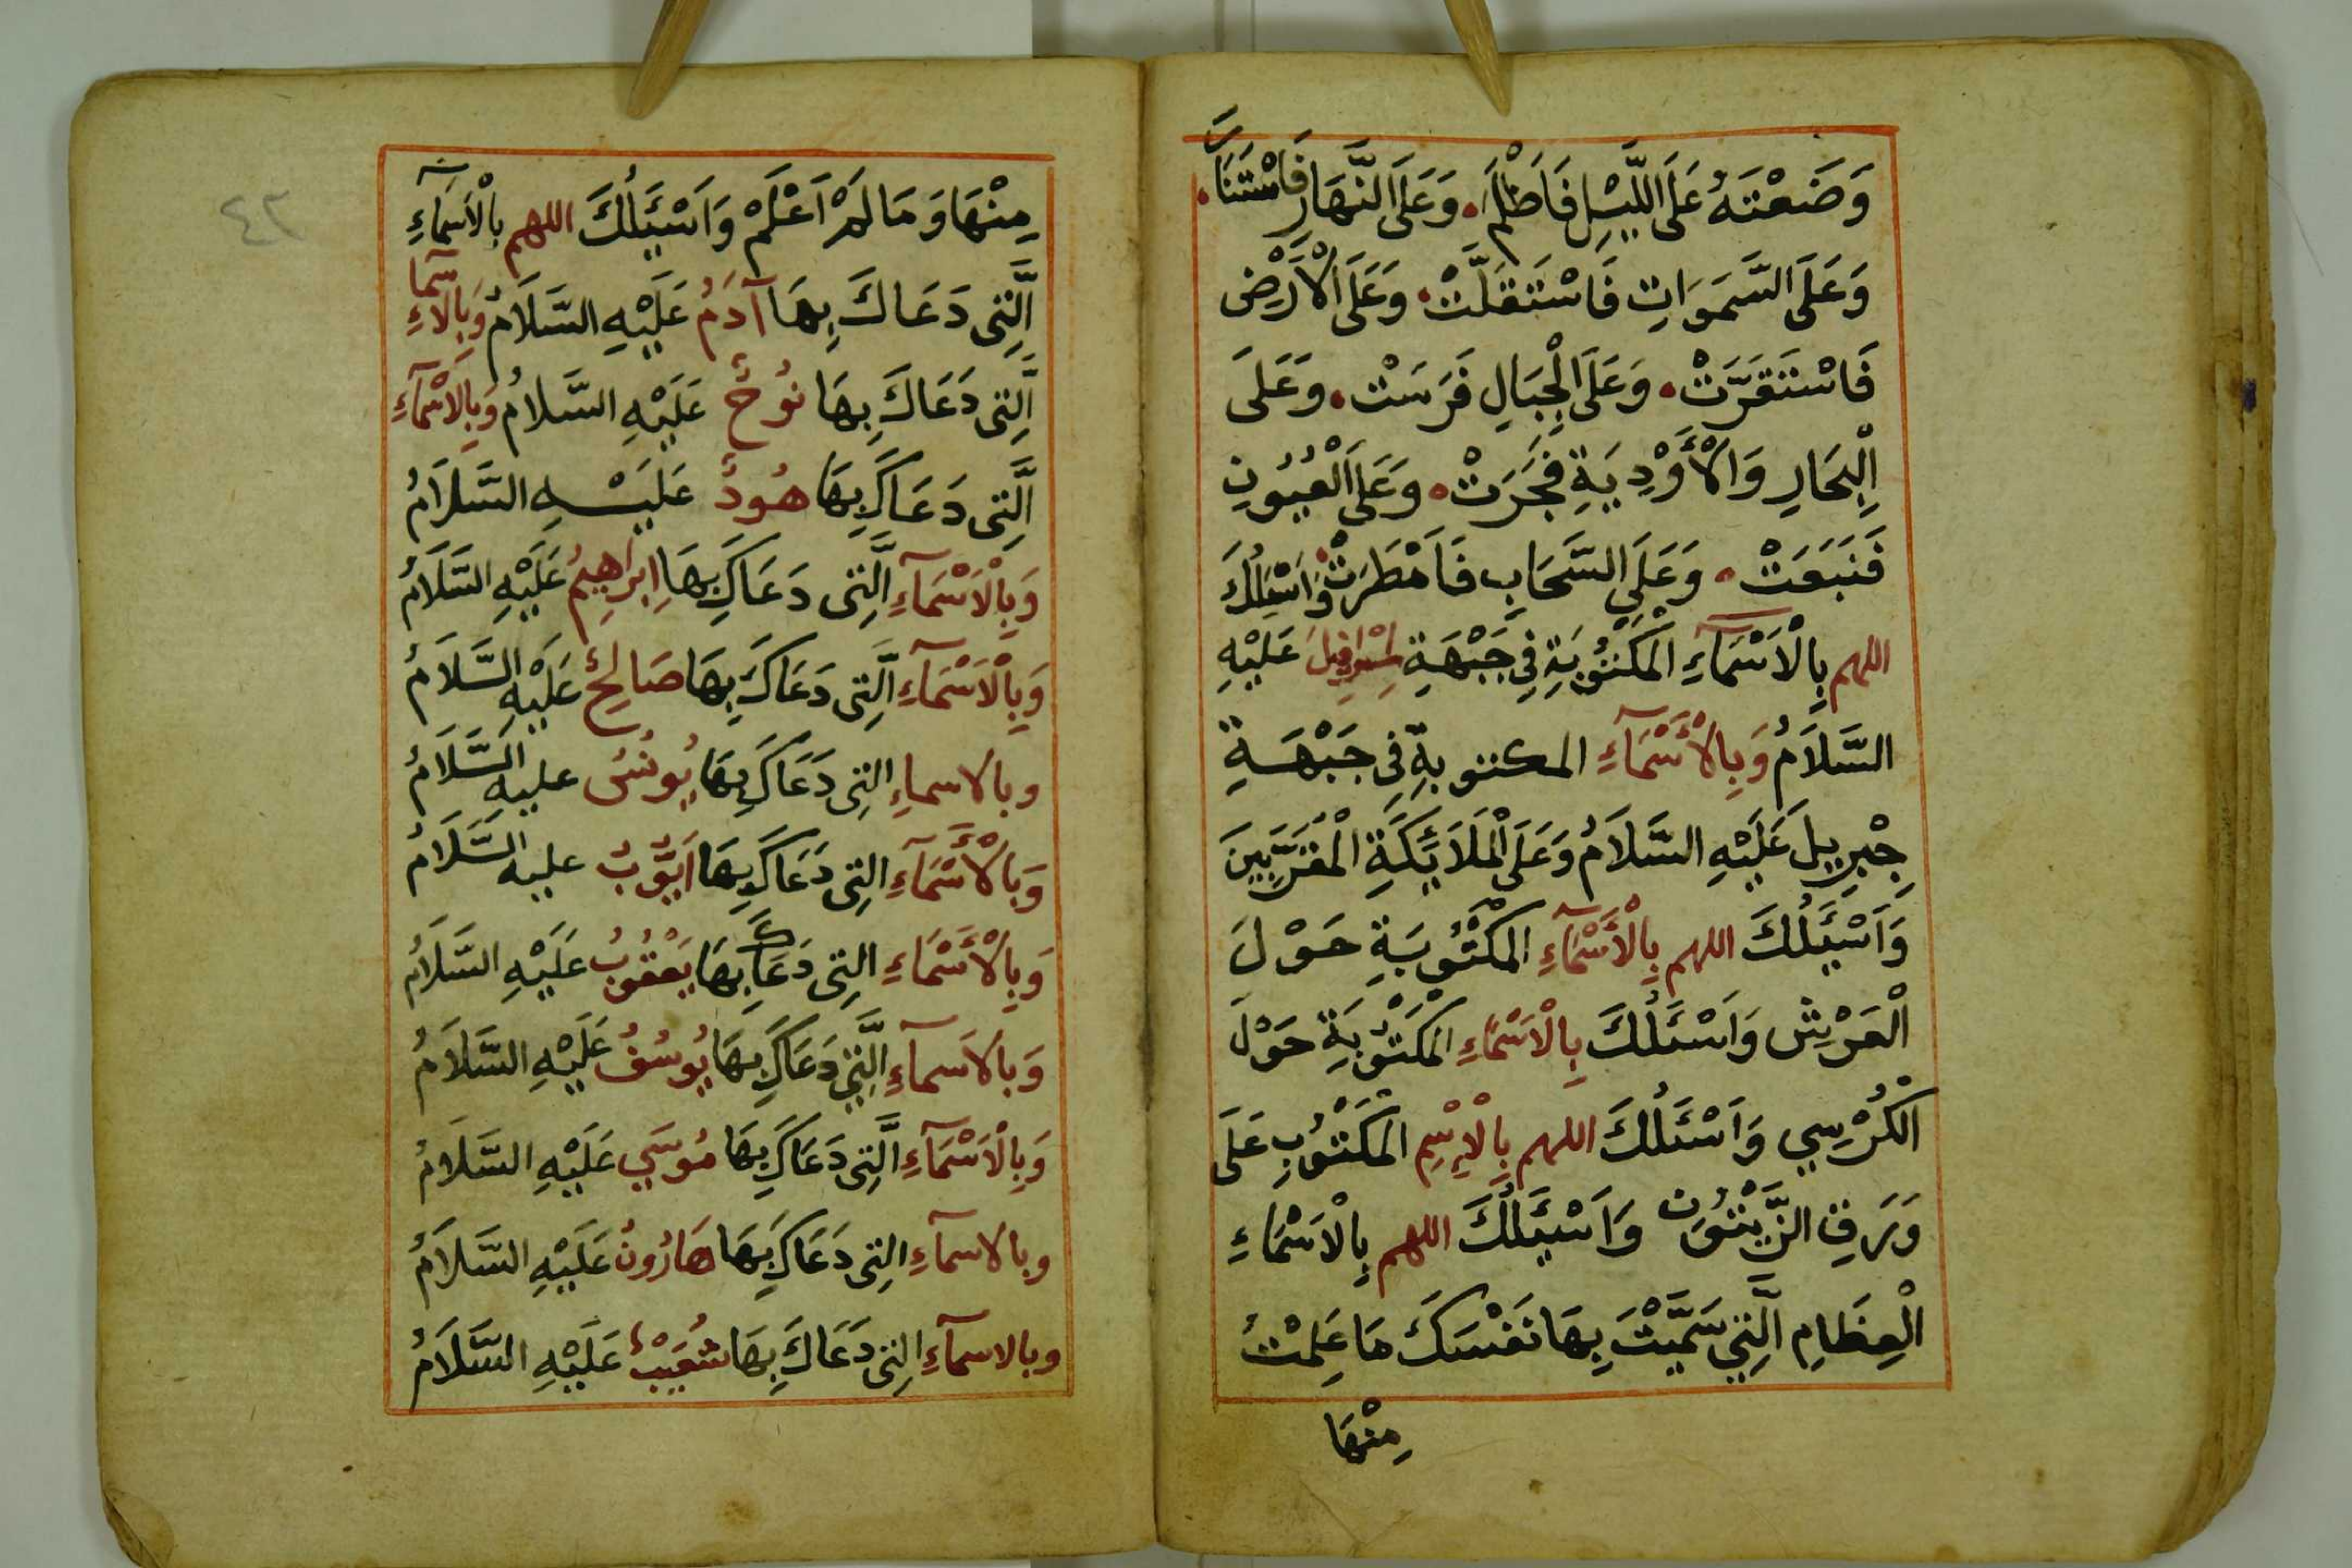 وَضَعْتَهُ عَلَى اللَّيْلِ فَاَظْلَمَ وَعَلَى النَّهَارِ فَاسْتَنَارَ
وَعَلَى السَّمَوَاتِ فَاسْتَقَلَّتْ وَعَلَى الْاَرْضِ
فَاسْتَقَرَّتْ وَعَلَى الْجِبَالِ فَرَسَتْ وَعَلَى
الْبِحَارِ وَالْأَوْدِيَةِ فَجَرَتْ وَعَلَى الْعُيُونِ
فَنَبَعَتْ وَعَلَى السَّحَابِ فَاَمْطَرَتْ وَاَسْئَلُكَ
اللهم بِالْاَسْمَآءِ الْمَكْتُوْبَةِ فِي جَبْهَةِ اِسْرَافِيلَ عَلَيْهِ
السَّلَامُ وَبِالْأَسْمَآءِ المكتوبةِ فِى جَبْهَةِ
جِبْرِيلَ عَلَيْهِ السَّلَامُ وَعَلَى الْمَلَائِكَةِ الْمُقَرَّبِينَ
وَاَسْئَلُكَ اللهم بِالْأَسْمَآءِ الْمَكْتُوْبَةِ حَوْلَ
الْعَرْشِ وَاَسْئَلُكَ بِالْاَسْمَاءِ الْمَكْتُوْبَةِ حَوْلَ
الْكُرْسِي وَاَسْئَلُكَ اللهم بِالْاِسْمِ الْمَكْتُوْبِ عَلَى
وَرَقِ الزَّيْتُونِ وَاَسْئَلُكَ اللهم بِالْاَسْمَاءِ
الْعِظَامِ الَّتِي سَمَّيْتَ بِهَا نَفْسَكَ مَا عَلِمْتُ
مِنْهَا
٤٢
مِنْهَا وَمَا لَمْ اَعْلَمْ وَاَسْئَلُكَ اللهم بِالْاَسْمَآءِ
الَّتِى دَعَاكَ بِهَا آدَمُ عَلَيْهِ السَّلَامُ وَبِالاسمآءِ
الَّتِى دَعَاكَ بِهَا نُوحٌ عَلَيْهِ السَّلَامُ وَبِالْاَسْمَآءِ
الَّتِى دَعَاكَ بِهَا هُودٌ عَلَيْهِ السَّلَامُ
وَبِالْاَسْمَآءِ الَّتِى دَعَاكَ بِهَا اِبْرَاهِيمُ عَلَيْهِ السَّلَامُ
وَبِالْاَسْمَآءِ الَّتِى دَعَاكَ بِهَا صَالِحٌ عَلَيْهِ السَّلَامُ
وبالاسماءِ التِى دَعَاكَ بِهَا يُونُسُ عليهِ السَّلَامُ
وَبالْأَسْمَآءِ التِى دَعَاكَ بِهَا اَيُّوْبُ عليه السَّلَامُ
وَبِالْأَسْمَاءِ التِى دَعَاكَ بِهَا يَعْقُوبُ عَلَيْهِ السَّلَامُ
وَبالاَسمآءِ الَّتِي دَعَاكَ بِهَا يُوسُفُ عَلَيْهِ السَّلَامُ
وَبِالْاَسْمَآءِ الَّتِى دَعَاكَ بِهَا مُوسَي عَلَيْهِ السَّلَامُ
وبالاسمآءِ التِى دَعَاكَ بِهَا هَارُونُ عَلَيْهِ السَّلَامُ
وبالاسمآءِ التِى دَعَاكَ بِهَا شُعَيْبُ عَلَيْهِ السَّلَامُ